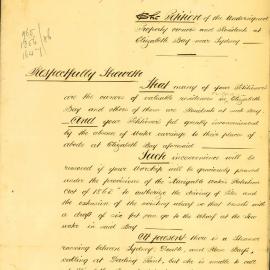 The Petition of the Undersigned
Property owners and Residents at
Elizabeth Bay near Sydney
Respectfully Sheweth
That many of your Petitioners
are the owners of valuable residences in Elizabeth
Bay and others of them are Residents at said Bay.
And your Petitioners feel greatly inconvenienced
by the absence of Water carriage to their places of
abode at Elizabeth Bay aforesaid
Such inconvenience will be
removed if your Worship will be graciously pleased
under the provisions of the Navigable Waters
to authorize the driving of Piles and
the extension of the existing wharf so that vessels with
a draft of six feet can go to the wharf at the
water in said Bay
At present there is a Steamer
running between Sydney South, and Rose Bay,
calling at Darling Point, but she is unable to call